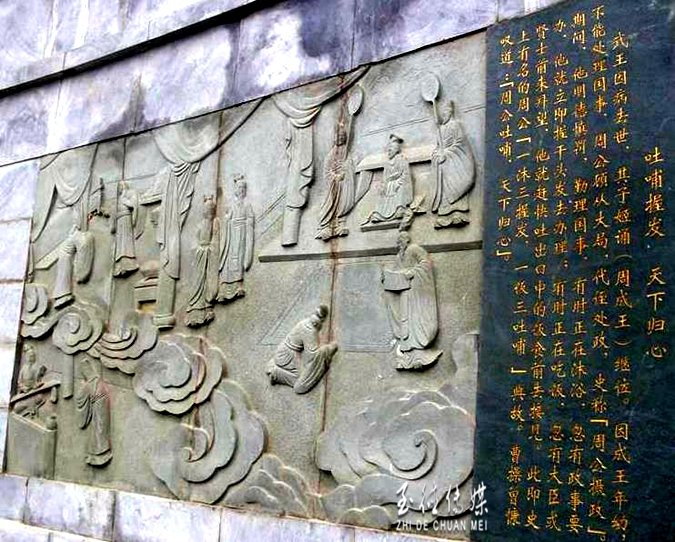 吐哺握发 天下归心
武王因病去世，其子姬诵（周成王）继位。因成王年幼，
不能处理国事，周公顾从大局，代侄处政，史称「周公摄政」。
期间，他明德慎罚，勤理国事，有时正在沐浴，忽有政事要
办，他就立即握干头发去办理；有时正在吃饭，忽有大臣或
贤士前来拜望，他就赶快吐出口中的饭食前去接见。此即史
上有名的周公「一沐三握发，一饭三吐哺」典故。曹操曾慷
叹道：「周公吐哺，天下归心」。
至德传媒
ZHI DE CHUAN MEI